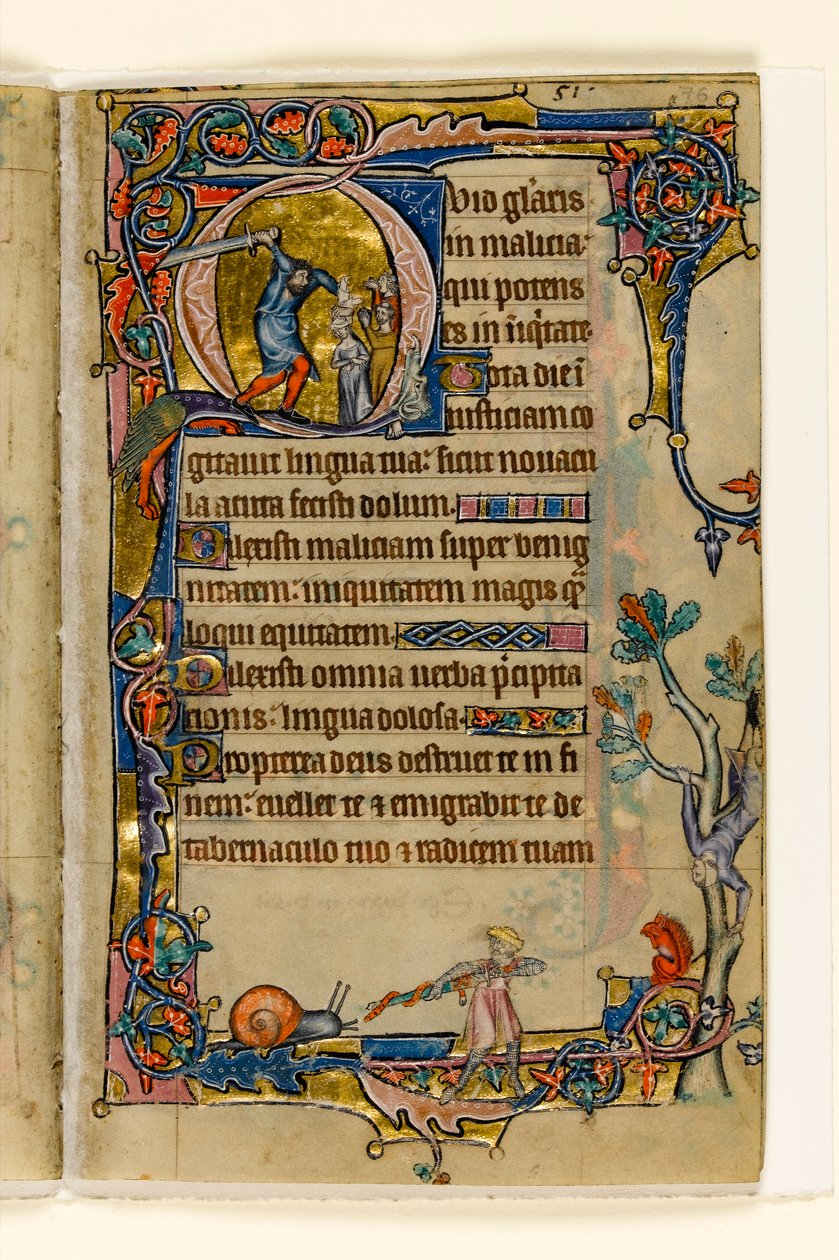 51· 76
QVid gl̄aris
in malicia:
qui potens
es in iniq̄tate·
Tota die ī
iusticiam co
gitauit lingua tua: sicut nouacu
la acuta fecisti dolum.
Dilexisti maliciam super benig
nitatem: iniquitatem magis q̄
loqui equitatem.
Dilexisti omnia uerba p̄cipita
cionis: lingua dolosa.
Propterea deus destruet te in fi
nem: euellet te ⁊ emigrabit te de
tabernaculo tuo ⁊ radicem tuam